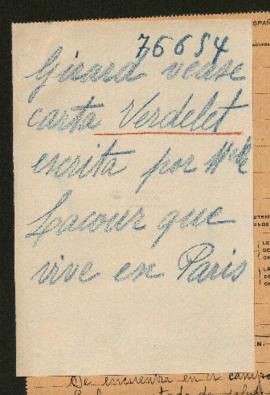 76654
Girard vease
carta Verdelet
escrita por Melle
Lacour que
vive en Paris
ESPAÑ
Se encuentra en el campo